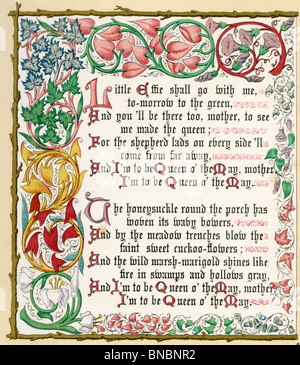 Little Effie shall go with me,
to-morrow to the green,
And you'll be there too, mother, to see
me made the queen;
For the shepherd lads on every side 'll
come from far away,
And I'm to be Queen o' the May, mother,
I'm to be Queen o' the May.
The honeysuckle round the porch has
woven its wavy bowers,
And by the meadow trenches blow the
faint sweet cuckoo-flowers;
And the wild marsh-marigold shines like
fire in swamps and hollows gray,
And I'm to be Queen o' the May, mother,
I'm to be Queen o' the May.
alamy
www.alamy.com - BNBNR2